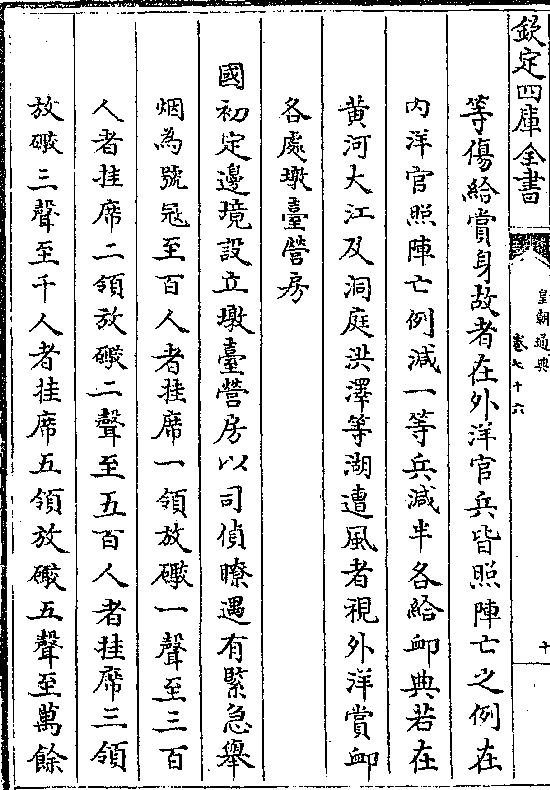 欽定四庫全書
皇朝通典
卷七十六
十
等傷給賞身故者在外洋官兵皆照陣亡之例在
内洋官照陣亡例減一等兵減半各給䘏典若在
黄河大江及洞庭洪澤等湖遭風者視外洋賞䘏
各處墩臺營房
國初定邊境設立墩臺營房以司偵瞭遇有緊急舉
烟為號冦至百人者挂席一領放礟一聲至三百
人者挂席二領放礟二聲至五百人者挂席三領
放礟三聲至千人者挂席五領放礟五聲至萬餘